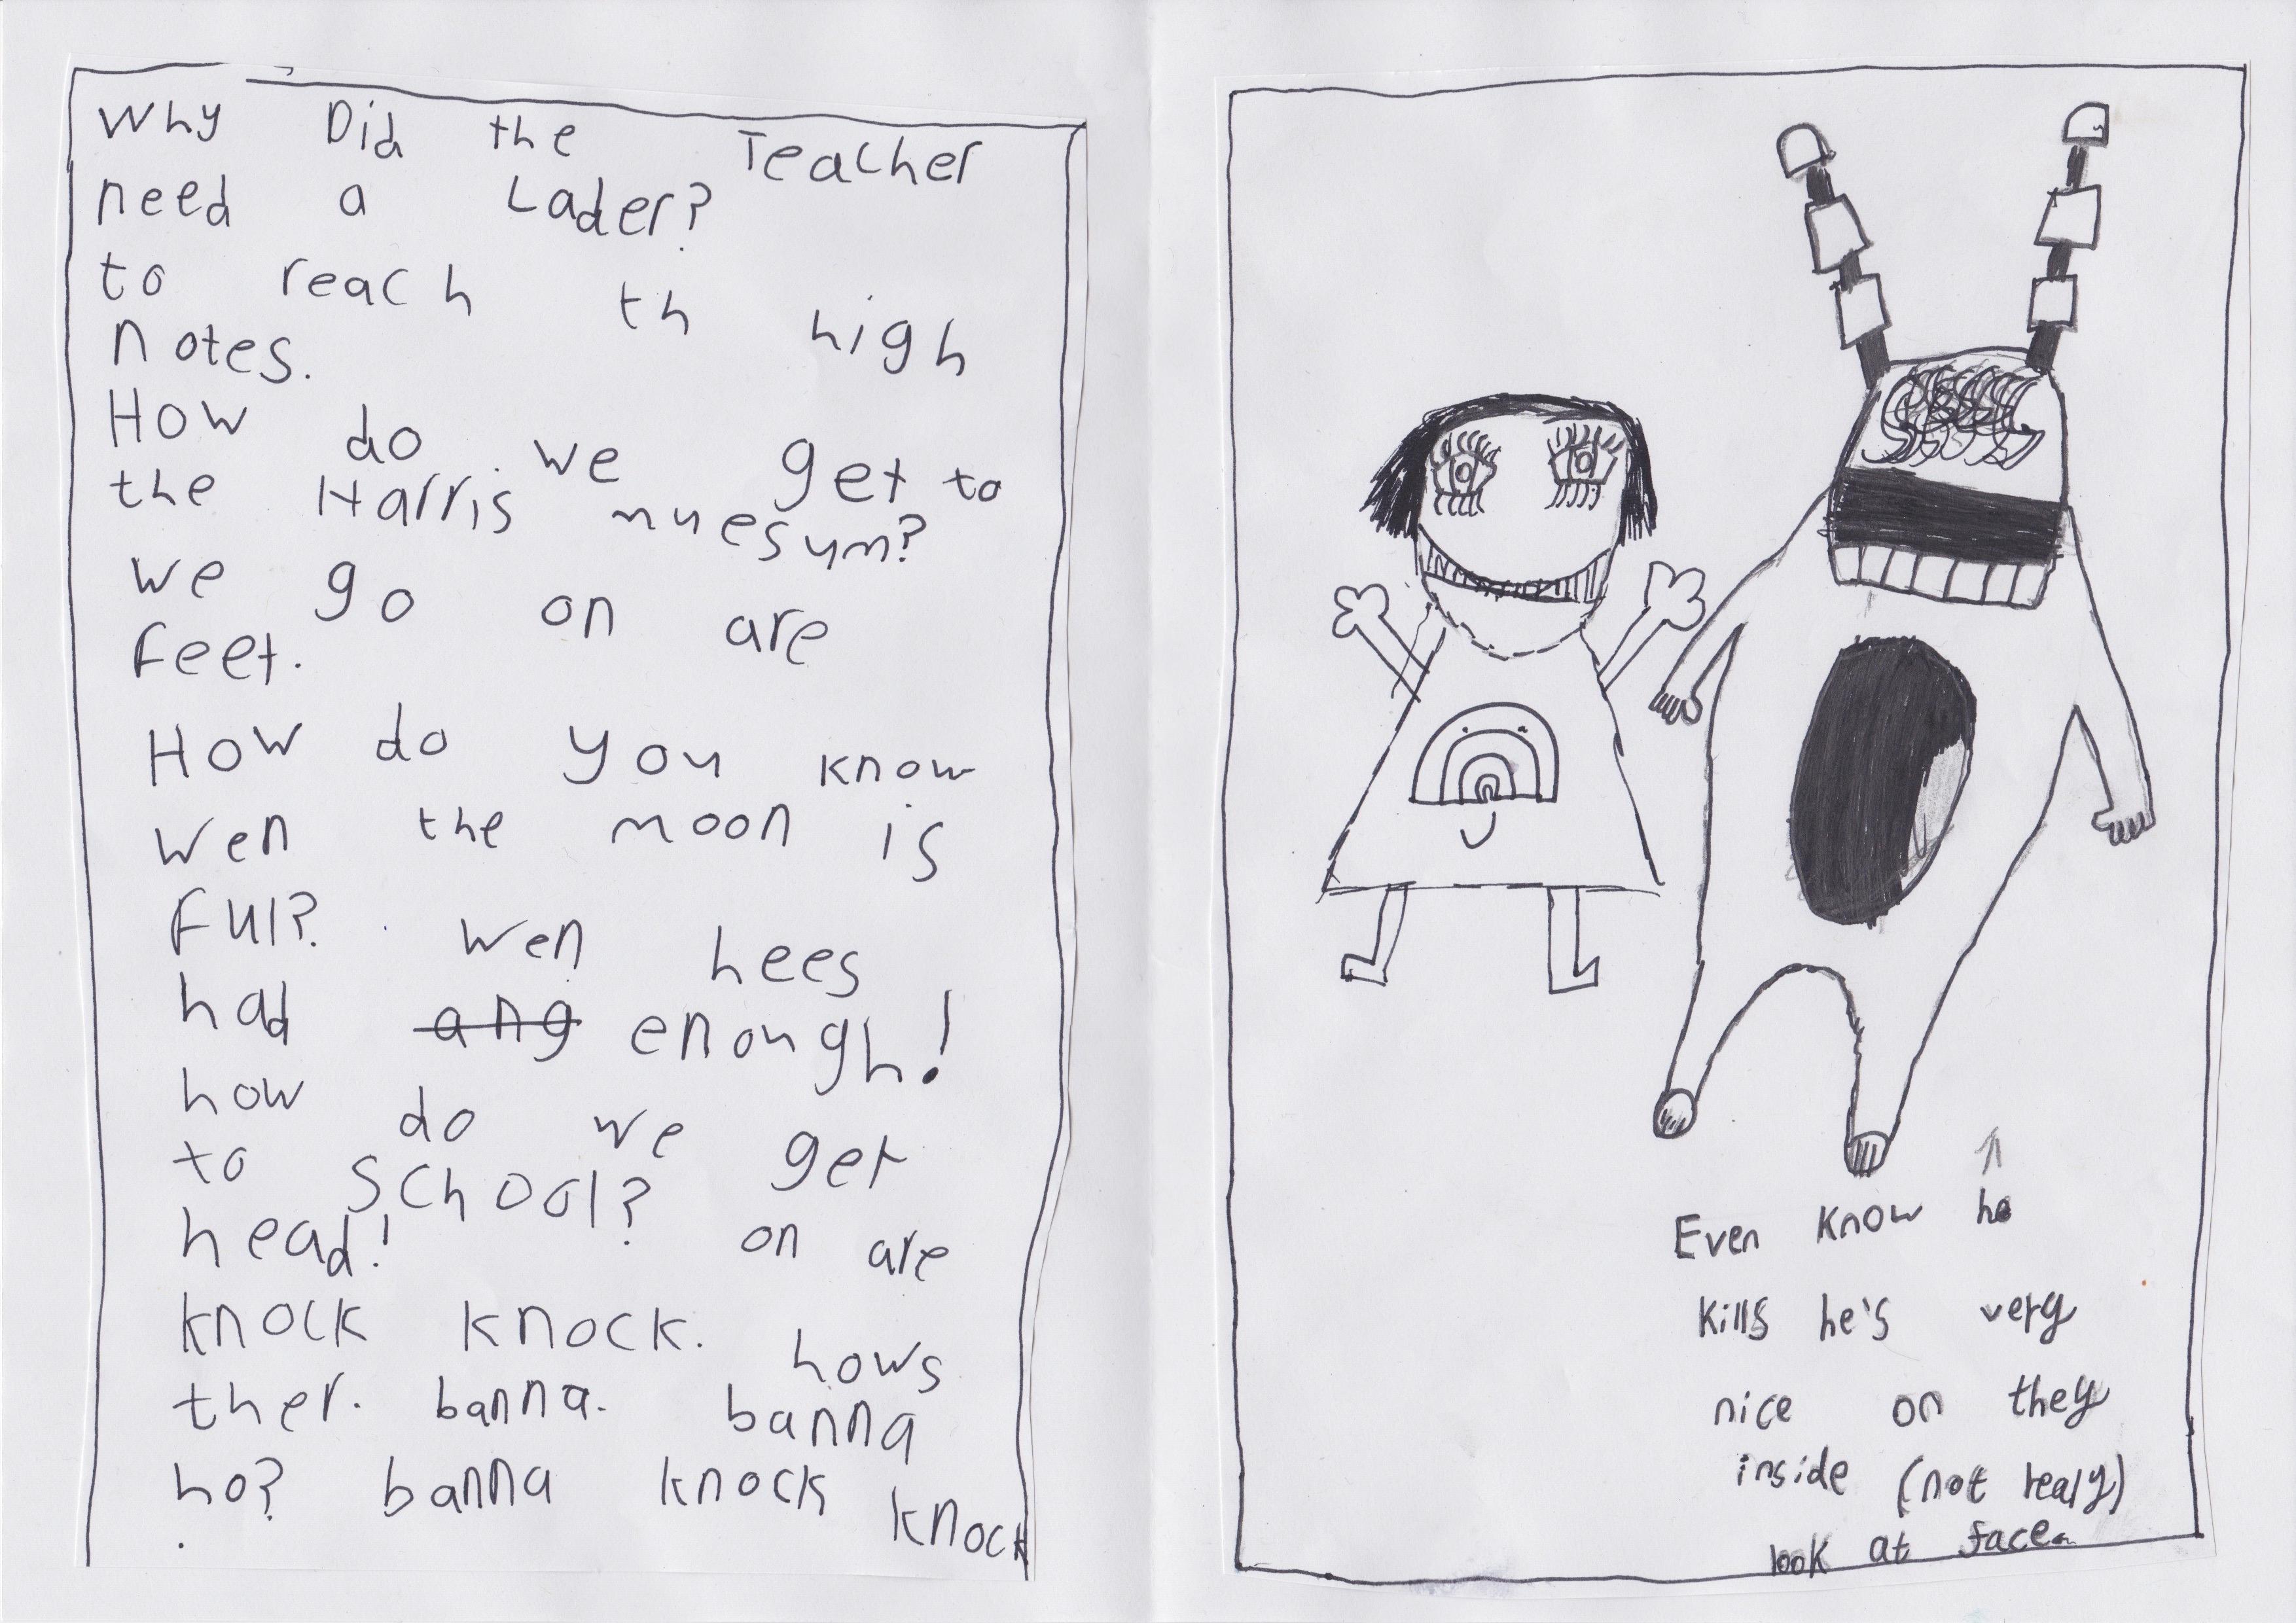 Why Did the Teacher
need a Lader?
to reach th high
notes.
How do we get to
the Harris muesym?
we go on are
feet.
How do you know
wen the moon is
ful? wen hees
had ang enough!
how do we get
to School?
head! on are
knock knock. hows
ther. banna. banna
ho? banna knock knock
Even know he
kills he's very
nice on they
inside (not realy)
look at face